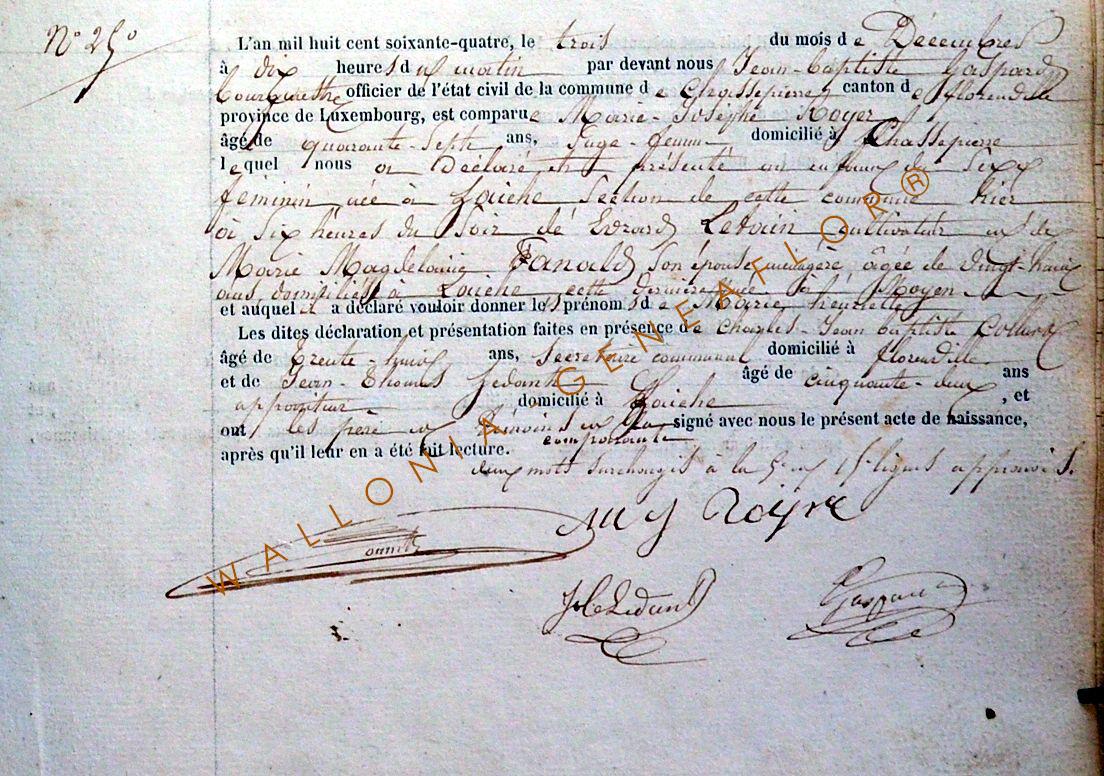 N° 25°
L'an mil huit cent soixante-quatre, le trois du mois de Décembre
à dix heures du matin par devant nous Jean-Baptiste Gaspard
officier de l'état civil de la commune de Chassepierre canton de florenville
province de Luxembourg, est comparue Marie-Josèphe Royer
âgé de quarante-sept ans, Sage-femme domicilié à Chassepierre
lequel nous a Déclaré et présenté un enfant de Sexe
féminin née à Laiche Section de cette commune hier
à Six heures du Soir de Edzard cultivateur et de
Marie Magdelaine Fanald, son épouse ménagère, âgée de vingt-huit
ans, domiciliés à Laiche cette dernière née à Moyen
et auquel a déclaré vouloir donner les prénoms de Marie henriette
Les dites déclaration et présentation faites en présence de Charles-Jean Baptiste Collard
âgé de trente-huit ans, secrétaire communal domicilié à florenville
et de Jean-Thomas Ledant âgé de cinquante-deux ans
appariteur domicilié à Laiche, et
ont les père et témoins et la comparante signé avec nous le présent acte de naissance,
après qu'il leur en a été fait lecture.
deux mots surchargés à la 5e et 15e lignes approuvés.
M J Roÿre
Ledant
Gaspard
WALLONIA GENEAFLOR®